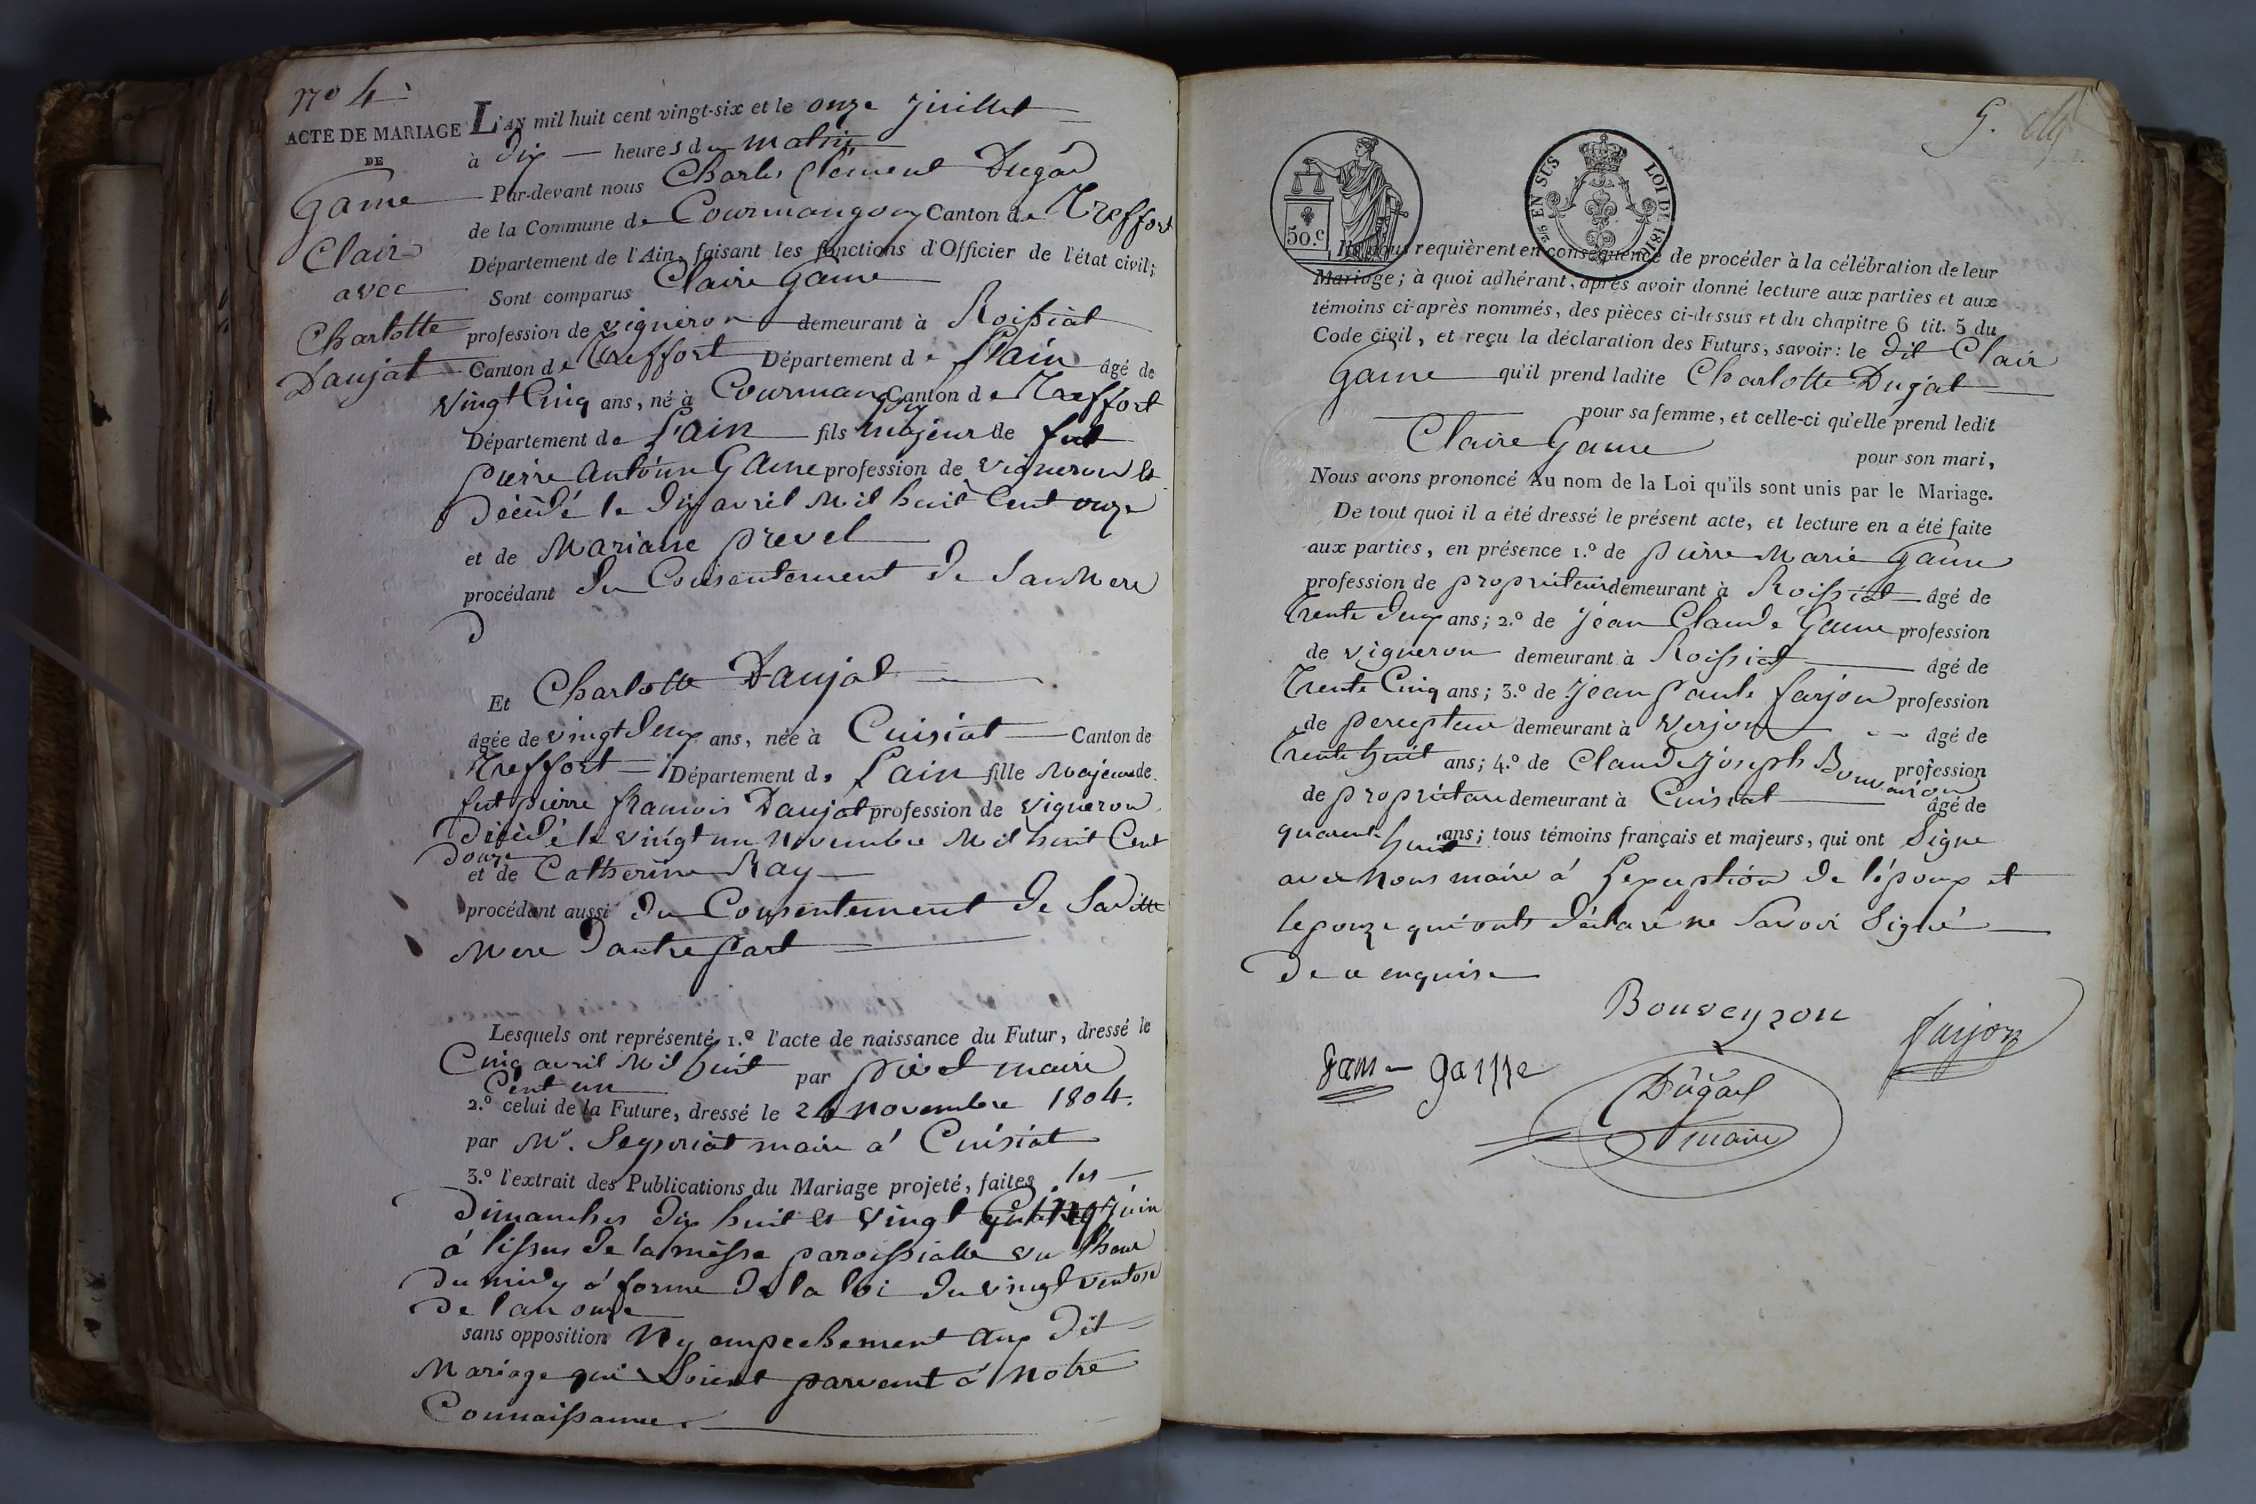 nº 4
ACTE DE MARIAGE
DE
Game
Clair
avec
Charlotte
Daujat
L'AN mil huit cent vingt-six et le onze juillet
à dix heures du matin
Par-devant nous Charles Clément Dugad
de la Commune de Courmangoux Canton de Treffort
Département de l'Ain, faisant les fonctions d'Officier de l'état civil;
Sont comparus Claire Game
profession de vigneron demeurant à Roissiat
Canton de Treffort Département de l'ain âgé de
vingt Cinq ans, né à Courmangoux Canton de Treffort
Département de L'ain fils majeur de fut
pierre antoine Game profession de vigneron
décédé le dix avril mil huit Cent onze
et de Mariane prevel
procédant du Consentement de sa mere
Et Charlotte Daujat
âgée de vingt deux ans, née à Cuisiat Canton de
Treffort Département de L'ain fille Majeure de
fut pierre francois Daujat profession de vigneron
décédé le vingt un novembre Mil huit Cent
douze
et de Catherine Ray
procédant aussi du Consentement de Saditte
Mere d'autre part
Lesquels ont représenté 1.º l'acte de naissance du Futur, dressé le
Cinq avril Mil huit par maire
Cent un
2.º celui de la Future, dressé le novembre 1804.
par Mr. maire à Cuisiat
3.º l'extrait des Publications du Mariage projeté, faites les
dimanches dix huit et vingt Cinq juin
à l'issus de la messe paroissialle vu l'heur
du midy à forme de la loi du vingt ventose
de l'an onze
sans opposition Ny empechement aux dit
Mariage qui Soient parvenut à Notre
Connaissance.
50.c
25 EN SUS LOI DE 1816
Ils nous requièrent en conséquence de procéder à la célébration de leur
Mariage; à quoi adhérant, après avoir donné lecture aux parties et aux
témoins ci-après nommés, des pièces ci-dessus et du chapitre 6 tit. 5 du
Code civil, et reçu la déclaration des Futurs, savoir: le dit Clair
Game qu'il prend ladite Charlotte Dujat
pour sa femme, et celle-ci qu'elle prend ledit
Claire Game
pour son mari,
Nous avons prononcé Au nom de la Loi qu'ils sont unis par le Mariage.
De tout quoi il a été dressé le présent acte, et lecture en a été faite
aux parties, en présence 1.º de pierre Marie Game
profession de propriétair demeurant à Roissiat âgé de
Trente deux ans; 2.º de jean Claude Game profession
de vigneron demeurant à Roissiat âgé de
Trente Cinq ans; 3.º de jean paule farjon profession
de percepteur demeurant à Verjon âgé de
trente huit ans; 4.º de Claude joseph Bouvairon profession
de propriétaire demeurant à Cuisiat âgé de
quarente huit ans; tous témoins français et majeurs, qui ont Signe
avec Nous maire à L'exception de l'époux et
lepouze qui onts déclaré ne Savoir Signé
de ce enquise
Bouveyron
farjon
Game Game
Dugad
maire